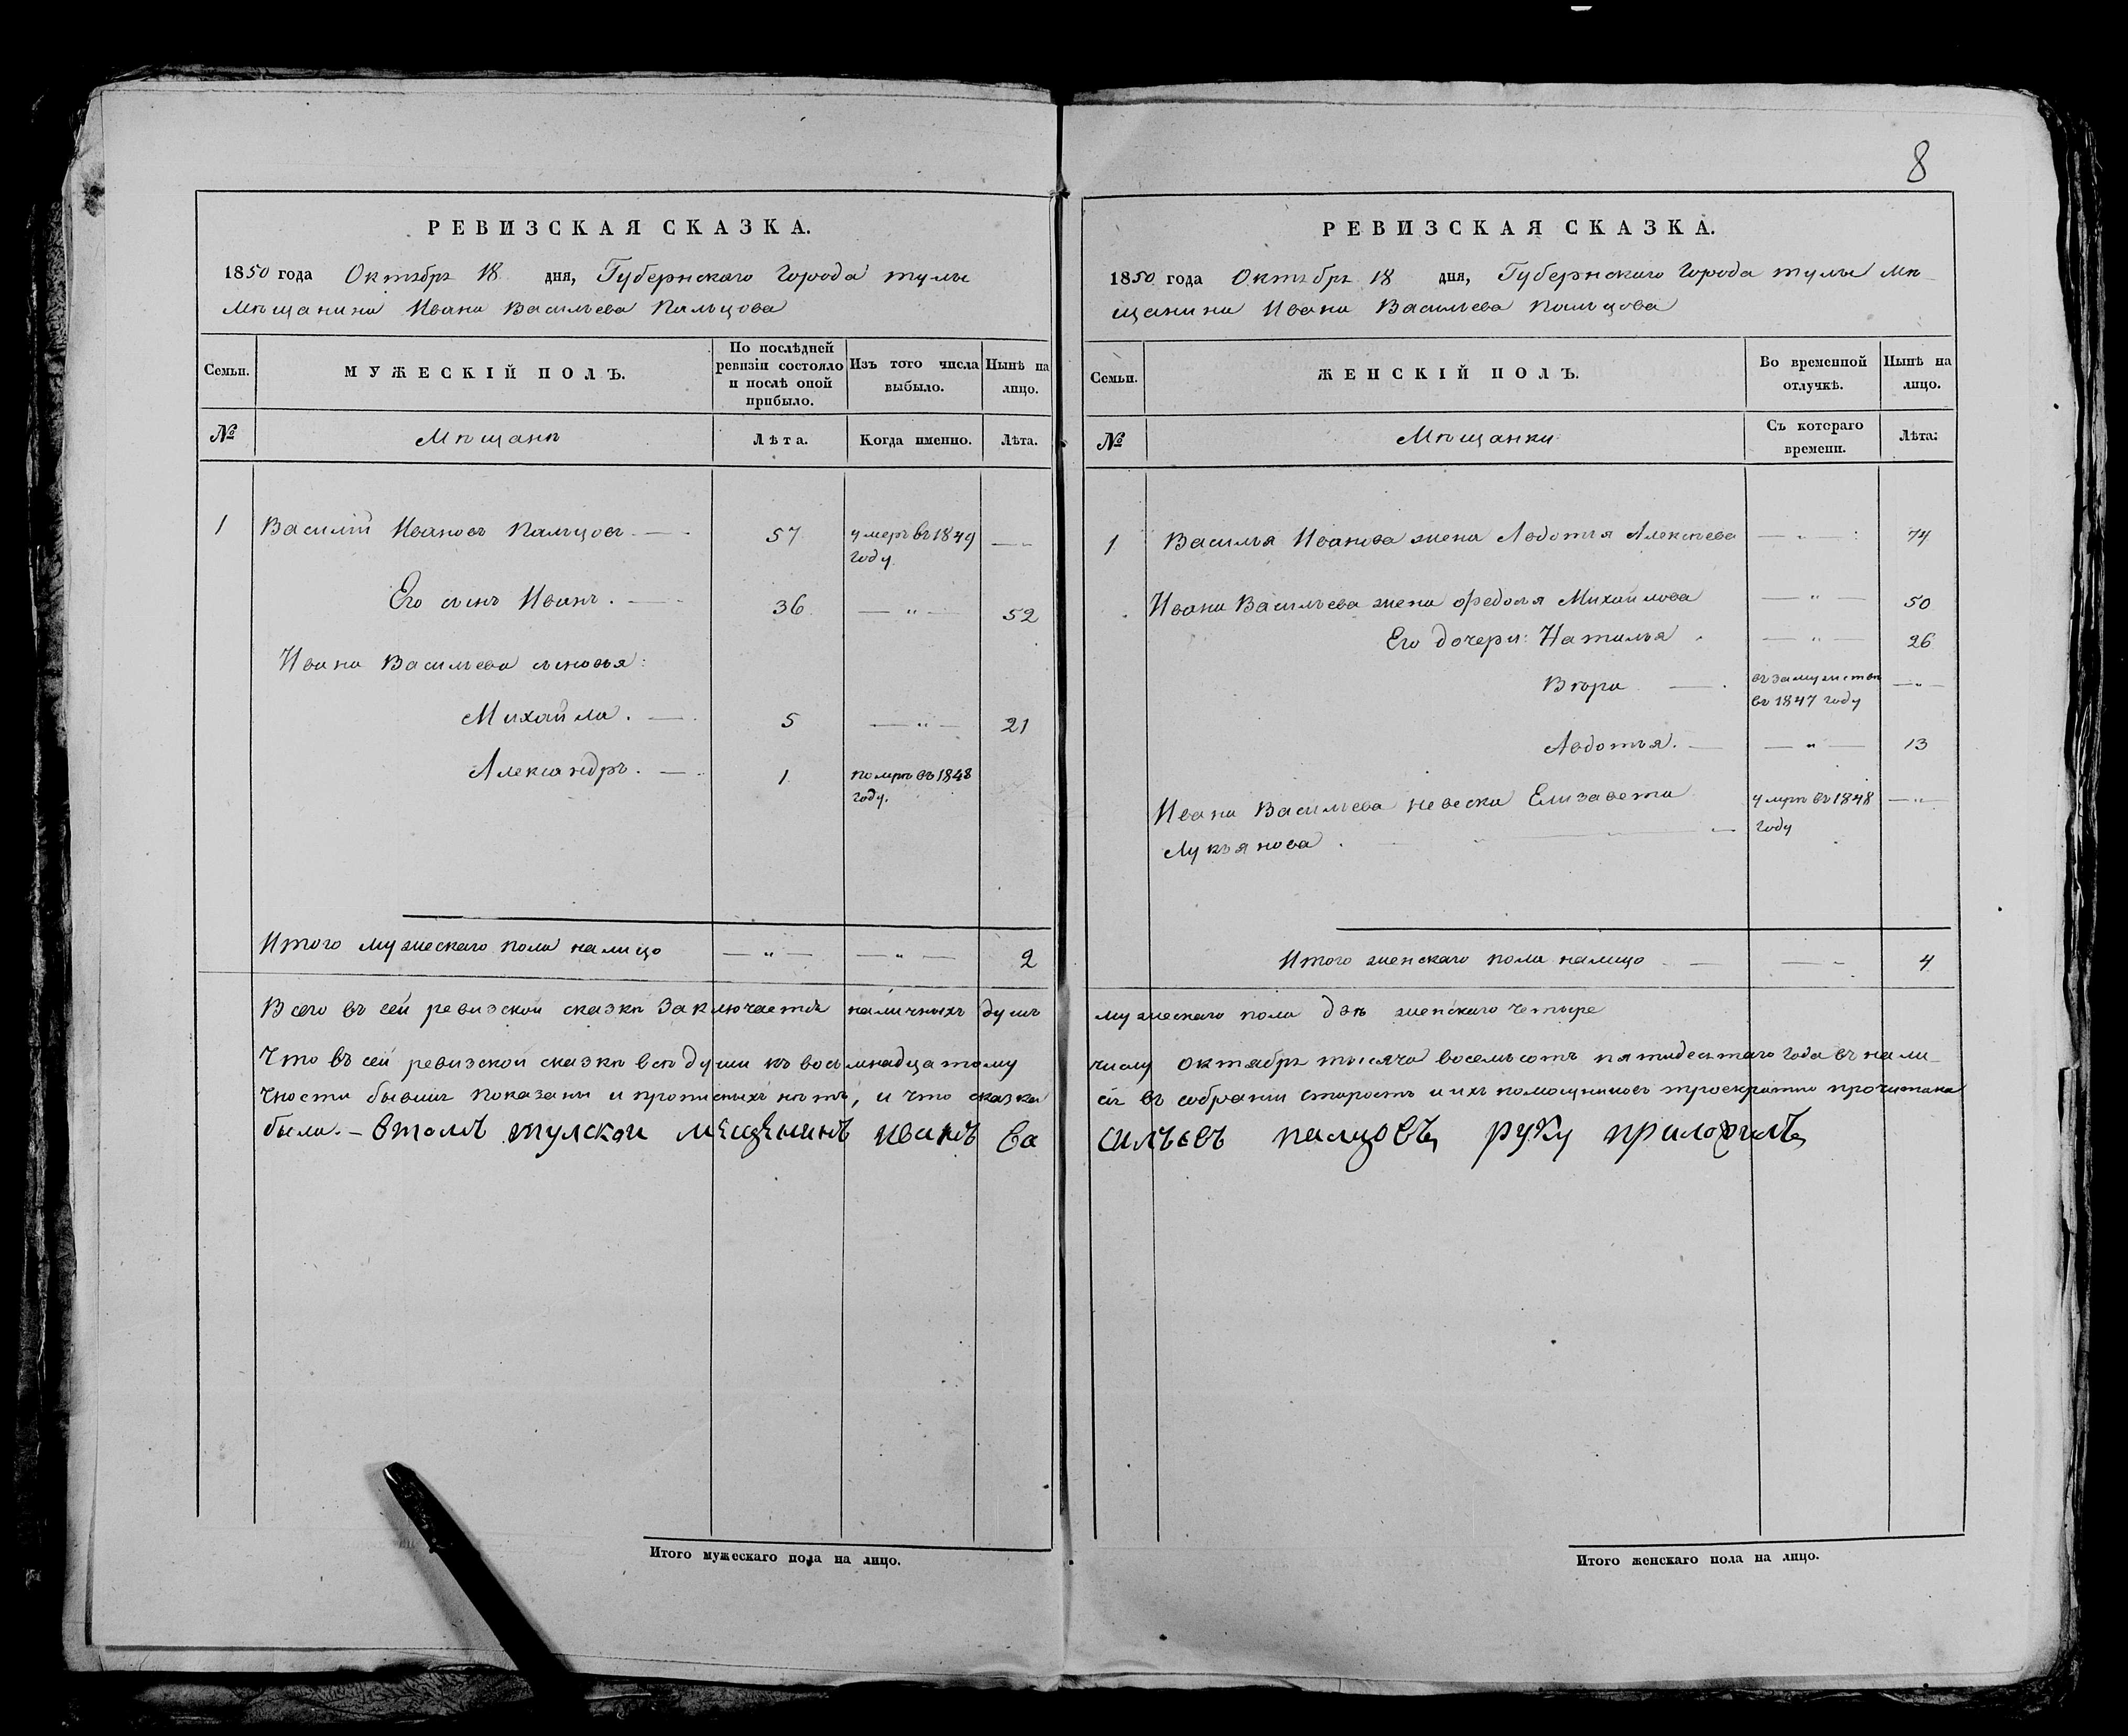 8
РЕВИЗСКАЯ СКАЗКА.
1850 года Октября 18 дня, Губернскаго Города тулы
Мѣщанина Ивана Васильева Пальцова
Семьи. МУЖЕСКІЙ ПОЛЪ. По послѣдней ревизіи состояло и послѣ оной прибыло. Изъ того числа выбыло. Нынѣ на лицо.
№ Мѣщане Лѣта. Когда именно. Лѣта.
1 Василій Ивановъ Пальцовъ. — 57 умеръ въ 1849 —„—
году
Его сынъ Иванъ. — 36 —„— 52
Ивана Васильева сыновья:
Михайла. — 5 —„— 21
Александръ. — 1 помре въ 1848
году.
Итого мужескаго пола налицо —„— —„— 2
Всего въ сей ревизской сказкѣ заключается наличныхъ душъ
Что въ сей ревизской сказкѣ всѣ души къ восьмнадцатому
чности бывшія показаны и прописныхъ нѣтъ, и что сказка
была. — втомъ тулской мещенинъ иванъ ва
Итого мужескаго пола на лицо.
РЕВИЗСКАЯ СКАЗКА.
1850 года Октября 18 дня, Губернскаго Города тулы Мѣ-
щанина Ивана Васильева Пальцова
Семьи. ЖЕНСКІЙ ПОЛЪ. Во временной отлучкѣ. Нынѣ на лицо.
№ Мѣщанки Съ котораго времени. Лѣта:
1 Василья Иванова жена Авдотья Алексѣева —„— 74
Ивана Васильева жена Федосья Михайлова —„— 50
Его дочери: Наталья . —„— 26
Вѣра — въ замужствѣ —„—
въ 1847 году
Авдотья. — —„— 13
Ивана Васильева невеска Елизавета умре въ 1848 —„—
Лукьянова . — году
Итого женскаго пола налицо — —„— 4
мужескаго пола двѣ женскаго четыре
числу октября тысяча восемьсотъ пятидесятаго года въ нали-
ся въ собраніи старостъ и ихъ помощниковъ троекратно прочитана
сильевъ палцовъ руку приложилъ
Итого женскаго пола на лицо.